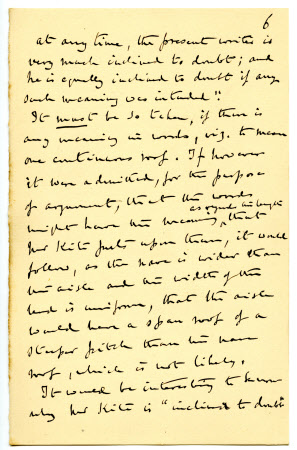 6
at any time, the present writer is
very much inclined to doubt; and
he is equally inclined to doubt if any
such meaning was intended".
It must be so taken, if there is
any meaning in words, viz. to mean
one continuous roof. If however
it were admitted, for the purpose
of argument, that the words
as regards the length
might have the meaning, that
Mr Kite puts upon them, it would
follow, as the nave is wider than
the aisle and the width of the
lead is uniform, that the aisle
would have a span roof of a
steeper pitch than the nave
roof, which is not likely.
It would be interesting to know
why Mr Kite is "inclined to doubt